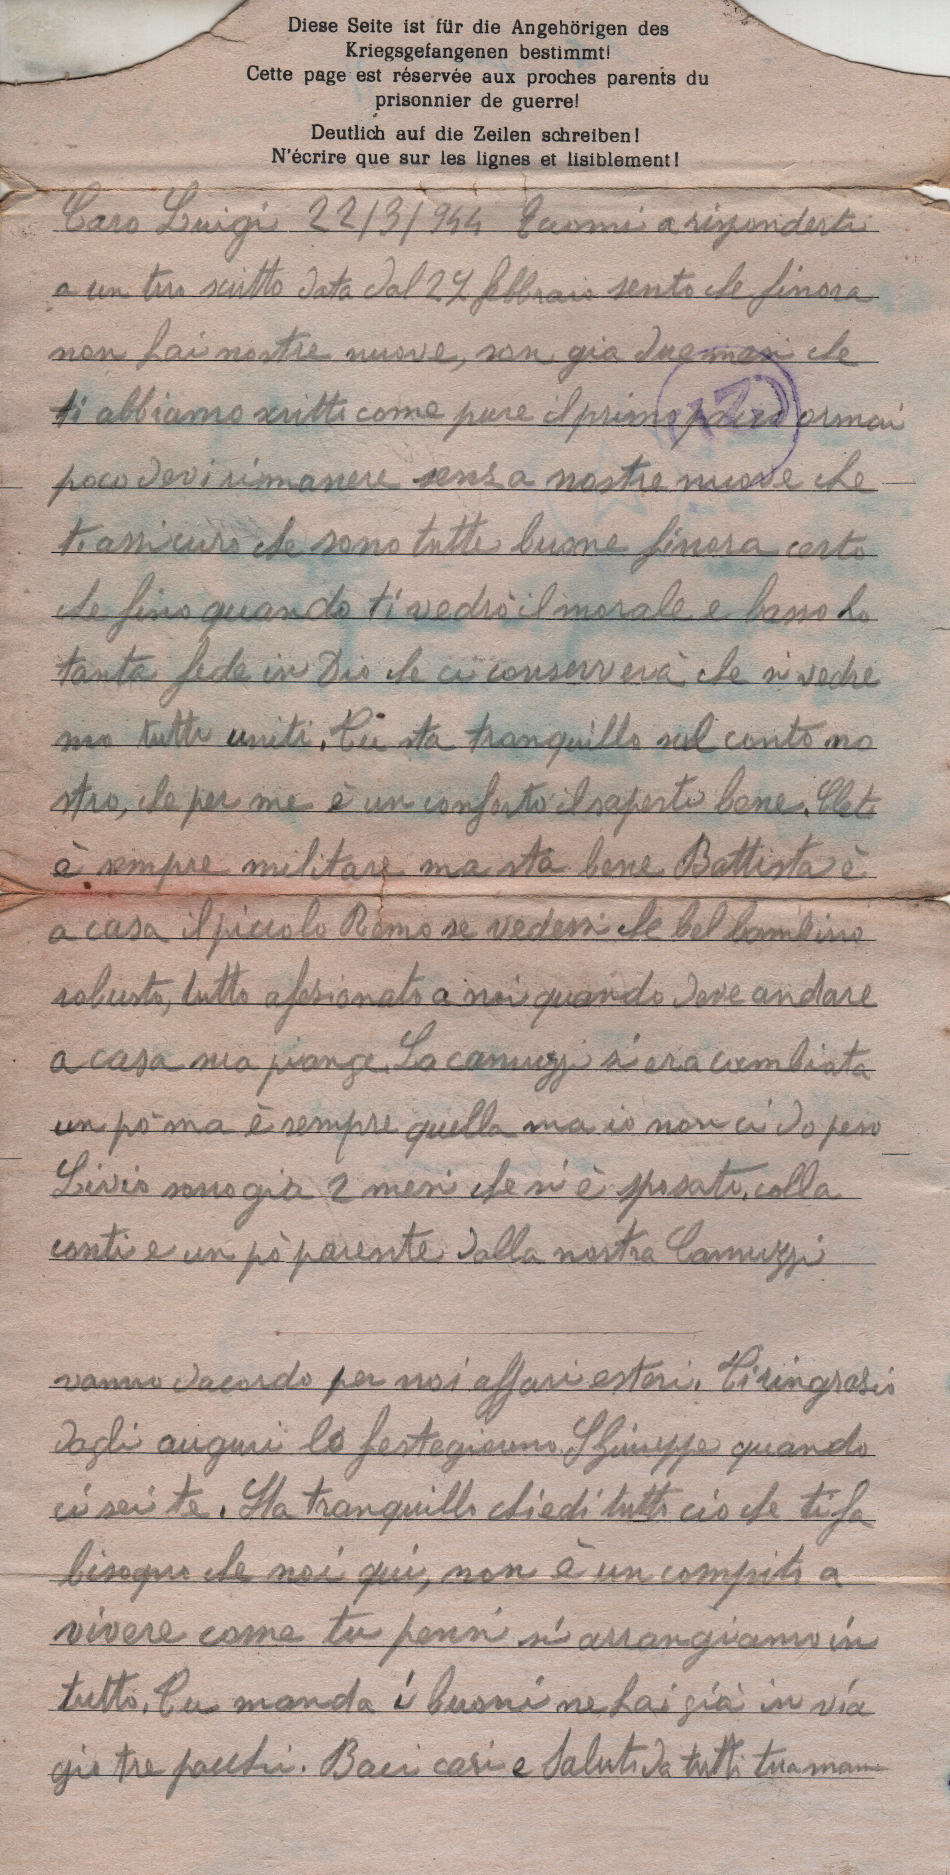 Diese Seite ist für die Angehörigen des
Kriegsgefangenen bestimmt!
Cette page est réservée aux proches parents du
prisonnier de guerre!
Deutlich auf die Zeilen schreiben!
N'écrire que sur les lignes et lisiblement!
Caro Luigi 22/3/944 Eccomi a risponderti
a un tuo scritto data dal 27 febbraio sento che finora
non hai nostre nuove, son gia due mesi che
ti abbiamo scritto come pure il primo pacco ormai
poco devi rimanere senza nostre nuove che
ti assicuro che sono tutte buone finora certo
che fino quando ti vedrò il morale e basso ho
tanta fede in Dio che ci conserverà che si vedre
mo tutti uniti. Tu sta tranquillo sul conto no
stro, che per me è un conforto il saperti bene.
è sempre militare ma sta bene Battista è
a casa il piccolo Remo se vedessi che bel bambino
robusto, tutto afesionato a noi quando deve andare
a casa sua piange. La camuzzi si era cambiata
un pò ma è sempre quella ma io non ci do peso
Livio sono gia 2 mesi che si è sposato, colla
conti e un pò parente dalla nostra Camuzzi
vanno dacordo per noi affari esteri. Ti ringrasio
dagli auguri lo festegieremo S Giuseppe quando
ci sei te. Sta tranquillo chiedi tutto cio che ti fa
bisogno che noi qui, non è un compito a
vivere come tu pensi si arrangiamo in
tutto. Tu manda i buoni ne hai già in via
gio tre pacchi. Baci cari e Saluti da tutti tua mam